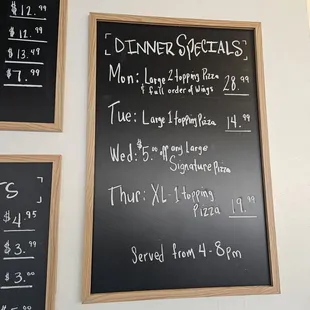 $12.99
$12.99
$13.49
$7.99
TS
$4.95
$3.99
$3.00
DINNER SPECIALS
Mon: Large 2 topping Pizza
& full order of wings 28.99
Tue: Large 1 topping Pizza 14.99
Wed: $5.00 off any Large
Signature Pizza
Thur: XL-1 topping
Pizza 19.99
Served from 4-8pm